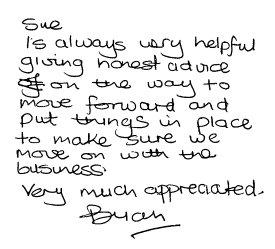 Sue
Is always very helpful
giving honest advice
on the way to
move forward and
put things in place
to make sure we
move on with the
business.
Very much appreciated.
Brian